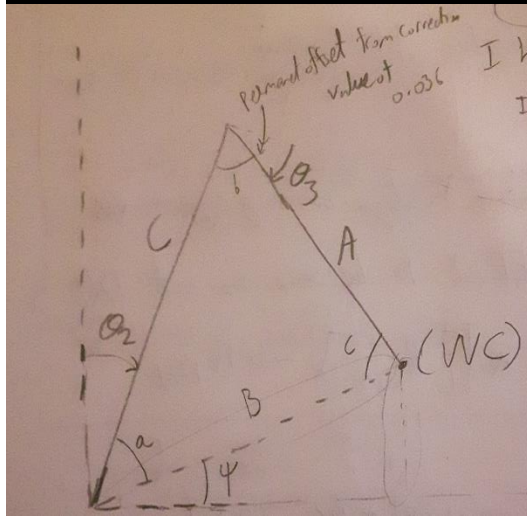 offset from correction
value of
0.036
I
I
b
θ3
C
A
θ2
c
(WC)
B
a
ψ